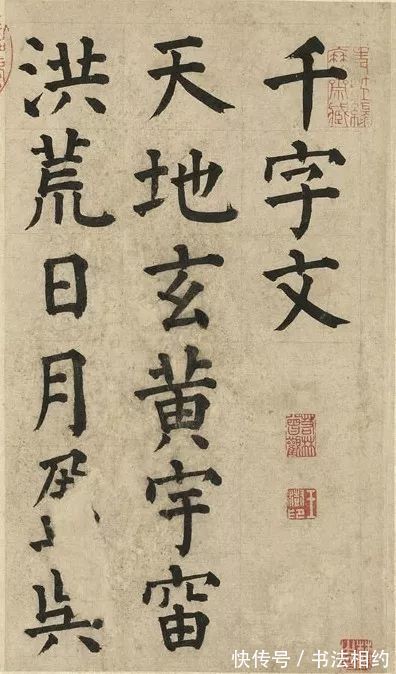 千字文
天地玄黄宇宙
洪荒日月
快传号 / 书法相约